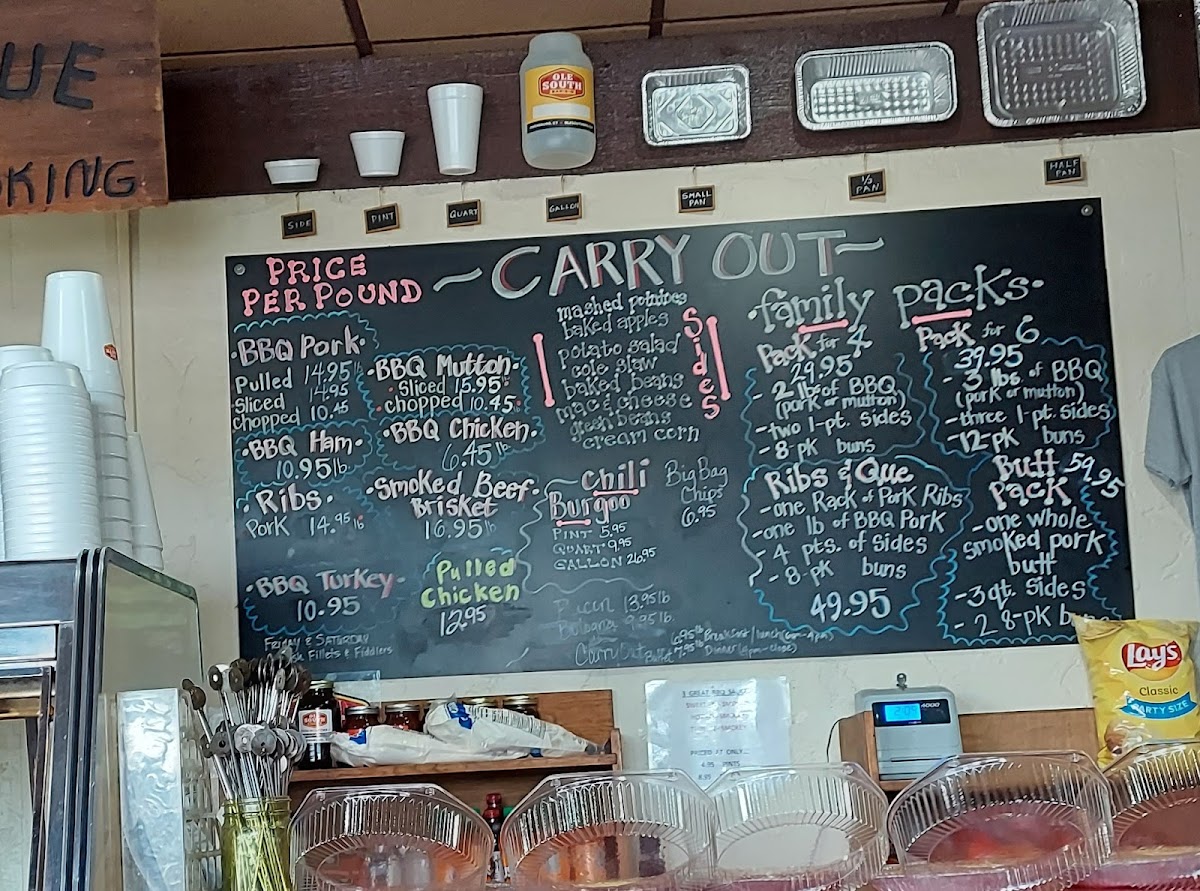 UE
KING
OLE
SOUTH
SIDE
PINT
QUART
GALLON
SMALL
PAN
1/3
PAN
HALF
PAN
~CARRY OUT~
PRICE
PER POUND
•BBQ Pork•
Pulled 14.95 lb
Sliced 14.95
chopped 10.45
•BBQ Ham•
10.95 lb
•Ribs•
Pork 14.95 lb
•BBQ Turkey•
10.95
FRIDAY & SATURDAY
Fillets & Fiddlers
•BBQ Mutton•
•Sliced 15.95 lb
•chopped 10.45 lb
•BBQ Chicken•
6.45 lb
•Smoked Beef•
Brisket
16.95 lb
Pulled
Chicken
12.95
mashed potatoes
baked apples
potato salad
cole slaw
baked beans
mac & cheese
green beans
cream corn
Sides
Chili
Burgoo
PINT 5.95
QUART 9.95
GALLON 26.95
Big Bag
Chips
6.95
13.95 lb
Bologna 9.95 lb
Carry Out Buffet
6.95 lb Breakfast/lunch (6am-4pm)
7.95 lb Dinner (4pm-close)
•family packs•
Pack for 4
29.95
- 2 lbs of BBQ
(pork or mutton)
-two 1-pt. sides
- 8-pk buns
Pack for 6
39.95
- 3 lbs. of BBQ
(pork or mutton)
-three 1-pt. sides
-12-pk buns
Ribs & Que
-one Rack of Pork Ribs
-one lb of BBQ Pork
- 4 pts. of Sides
- 8-pk buns
49.95
Butt 59.95
Pack
-one whole
smoked pork
butt
-3 qt. sides
- 2 8-pk b
3 GREAT BBQ SAUCE
PRICED AT ONLY...
4.95 PINTS
4000
Lay's
Classic
PARTY SIZE